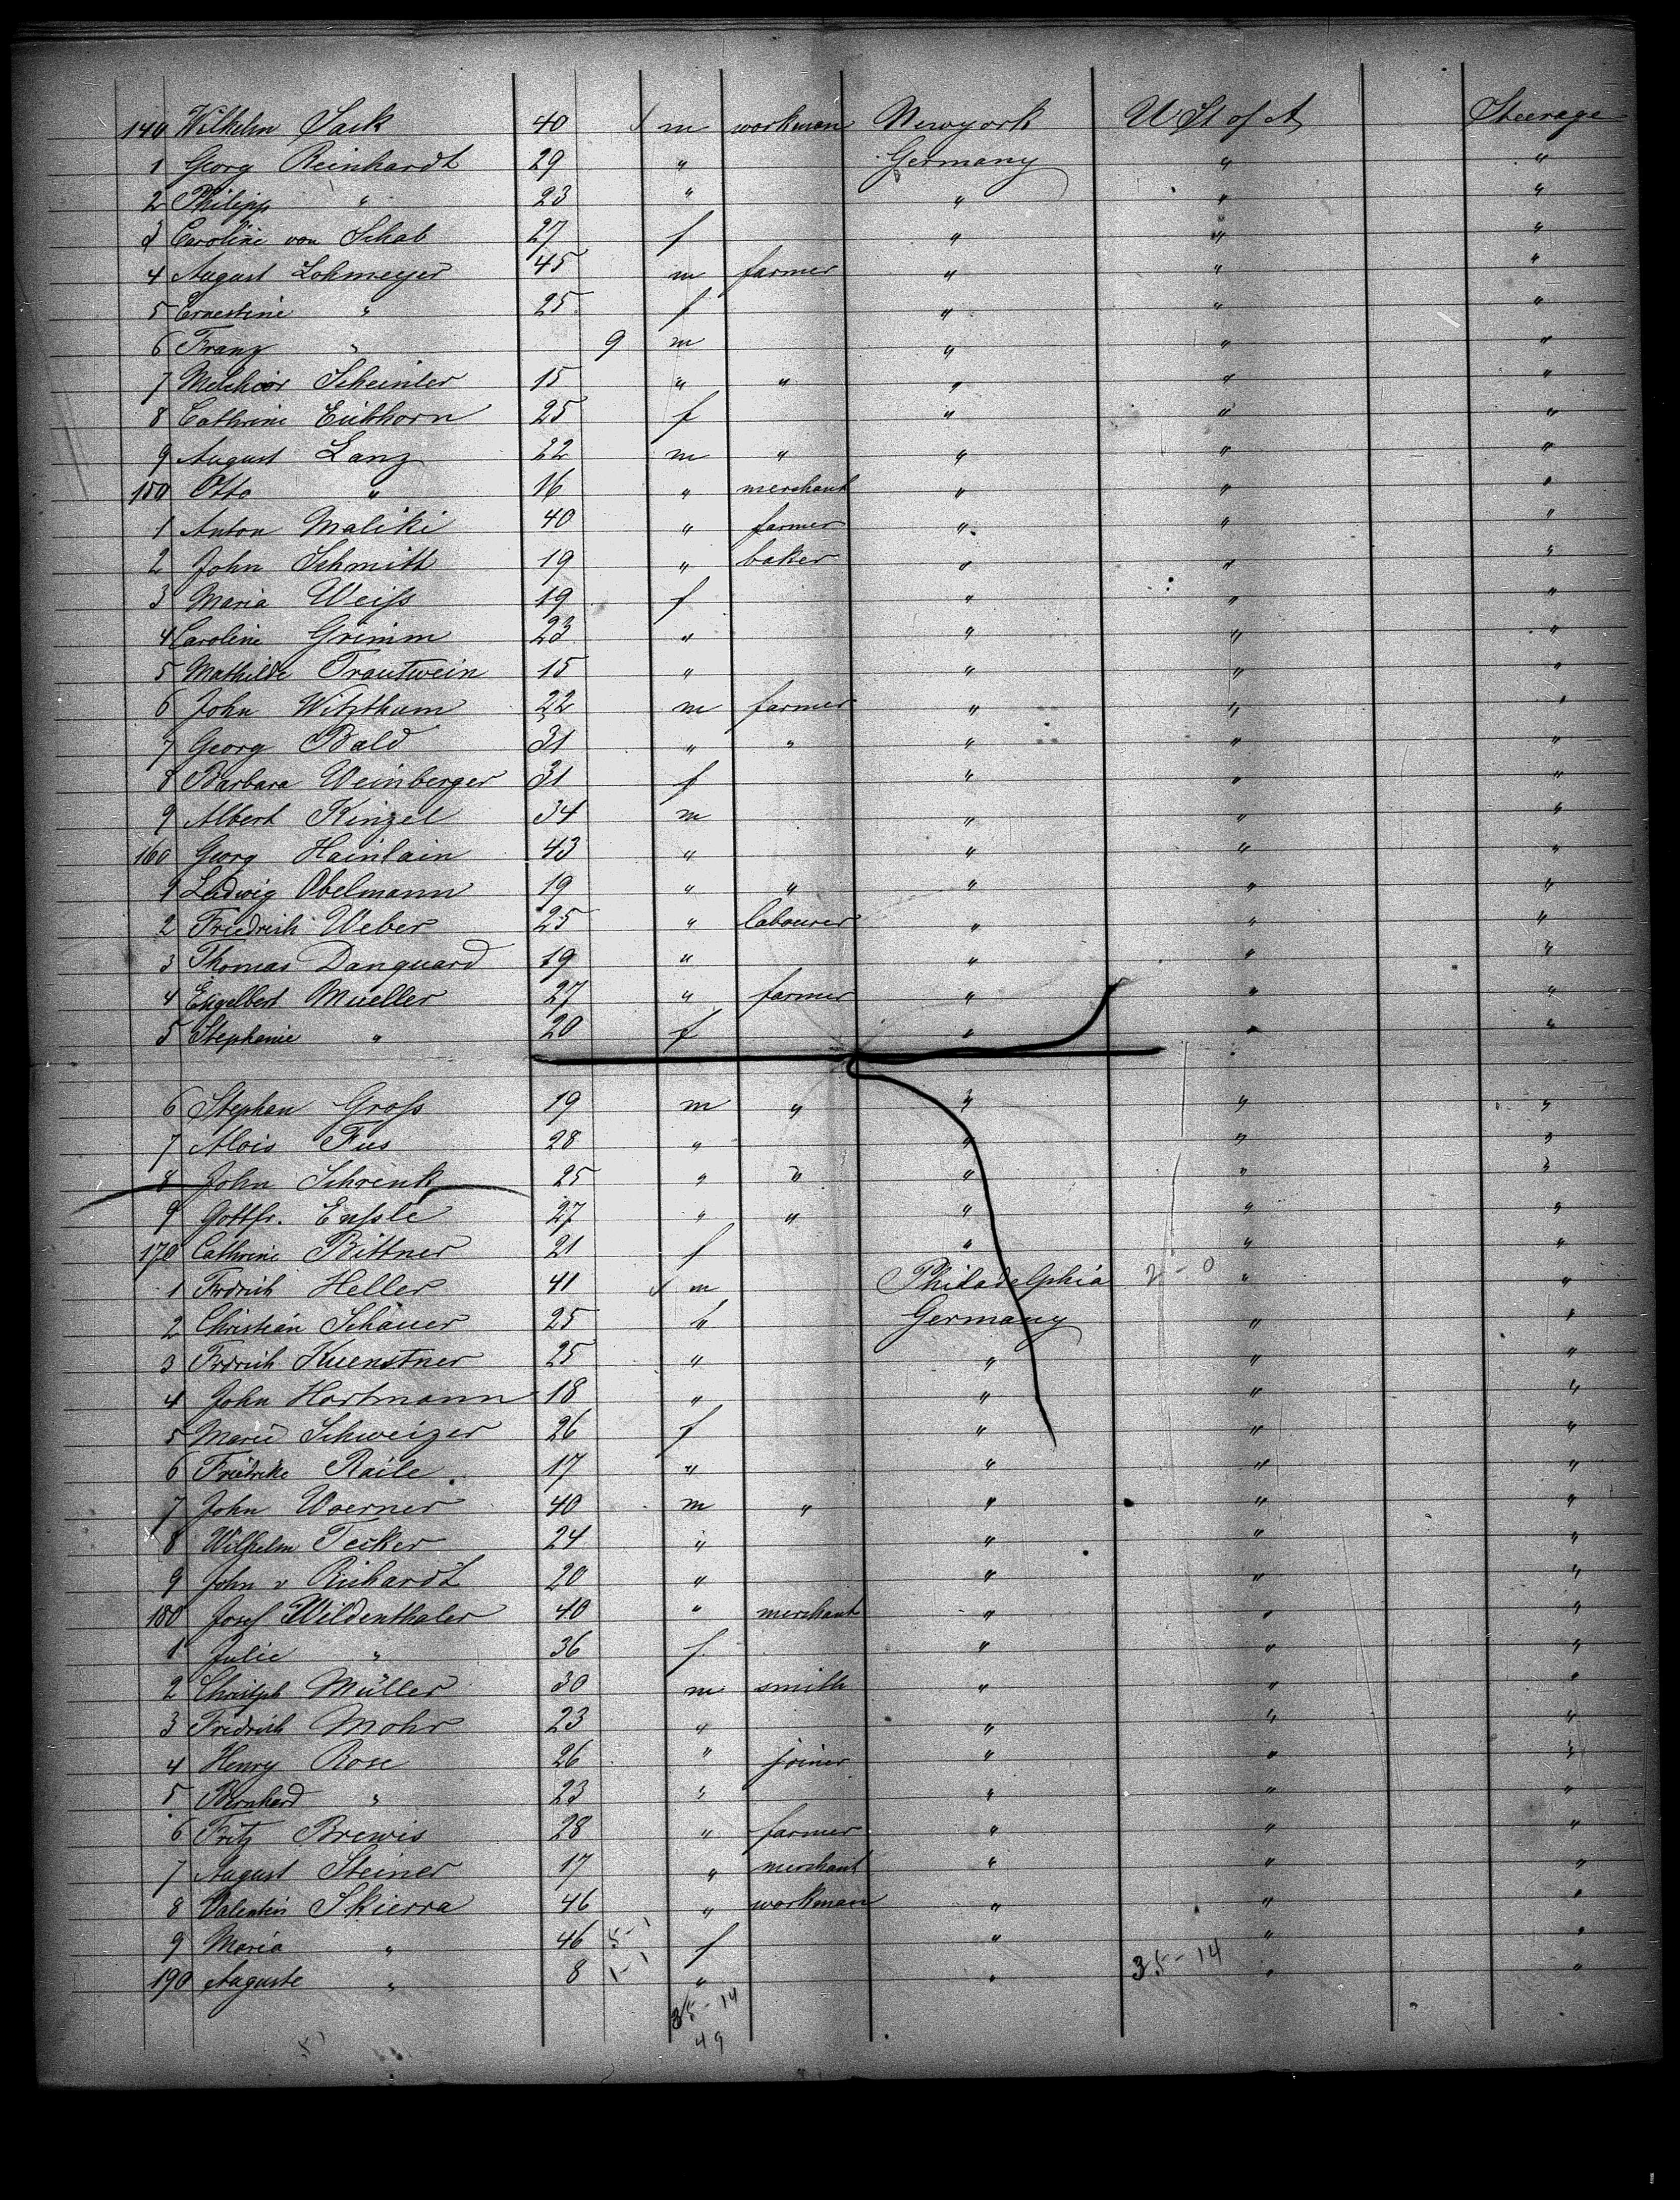 140 Wilhelm Sack 40 m workman Newyork U St of A Steerage
1 Georg Reinhardt 29 " Germany " "
2 Philipp " 23 " " " "
3 Caroline von Schab 27 f " " "
4 August Lohmeyer 45 m farmer " " "
5 Ernestine " 25 f " " "
6 Franz " 9 m " " "
7 Melchior Scheinler 15 " " " " "
8 Cathrine Eichhorn 25 f " " "
9 August Lanz 22 m " " " "
150 Otto " 16 " merchant " " "
1 Anton Maliki 40 " farmer " " "
2 John Schmitt 19 " baker " " "
3 Maria Weiss 19 f " " "
4 Caroline Grimm 23 " " " "
5 Mathilde Trautwein 15 " " " "
6 John Witzthum 22 m farmer " " "
7 Georg Bald 31 " " " " "
8 Barbara Weinberger 31 f " " "
9 Albert Kinzel 34 m " " "
160 Georg Hainlain 43 " " " "
1 Ludwig Obelmann 19 " " " " "
2 Friedrich Weber 25 " labourer " " "
3 Thomas Danguard 19 " " " "
4 Engelbert Mueller 27 " farmer " " "
5 Stephanie " 20 f " " "
6 Stephan Gross 19 m " " " "
7 Alois Fus 28 " " " "
8 John Schrenk 25 " " " " "
9 Gottfr. Enssle 27 " " " " "
170 Cathrine Bittner 21 f " " "
1 Frdrich Heller 41 m Philadelphia 2-0 " "
2 Christian Schäuer 25 " Germany " "
3 Frdrich Kuenstner 25 " " " "
4 John Hartmann 18 " " " "
5 Marie Schweizer 26 f " " "
6 Friedrike Raile 17 " " " "
7 John Woerner 40 m " " " "
8 Wilhelm Tecker 24 " " " "
9 John v Richardt 20 " " " "
180 Josef Wildenthaler 40 " merchant " " "
1 Julie " 36 f " " "
2 Christph Müller 30 m smith " " "
3 Fredrich Mohr 23 " " " "
4 Henry Rose 26 " joiner " " "
5 Bernhard " 23 " " " "
6 Fritz Brewis 28 " farmer " " "
7 August Steiner 17 " merchant " " "
8 Valentin Skierra 46 " workman " " "
9 Maria " 46 5-1 f " " "
190 Auguste " 8 1-1 " " 35-14 " "
35-14
49